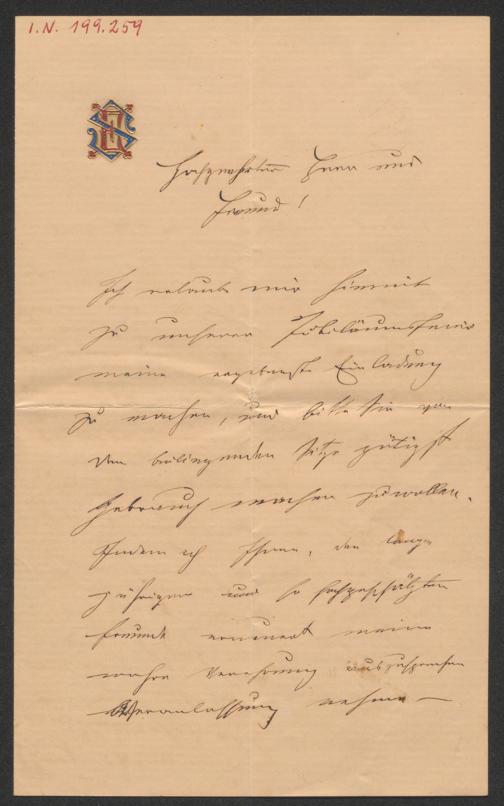 I.N. 199.259
Hochgeehrter Herr und
Freund!
Ich erlaube mir hiemit
zu unserer Jubiläumsfeier
meine ergebenste Einladung
zu machen, und bitte Sie von
dem beiliegenden Sitze gütigst
Gebrauch machen zu wollen.
Indem ich Ihnen, den lang
jährigen und so hochgeschätzten
Freunde erneuert meine
wahre Verehrung auszusprechen
Veranlassung nehme —